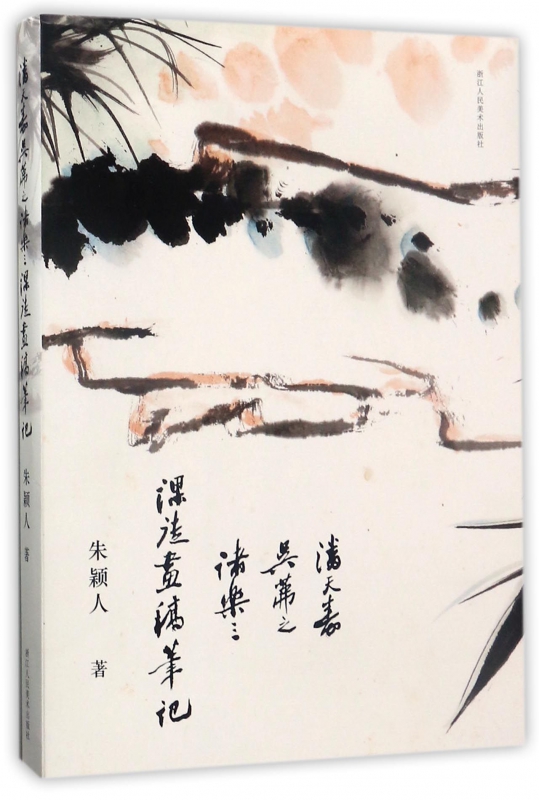 浙江人民美术出版社
潘天寿
吴茀之
诸乐三
课徒画稿笔记
朱颖人 著
潘天寿 吴茀之 诸乐三 课徒画稿笔记
朱颖人 著
浙江人民美术出版社